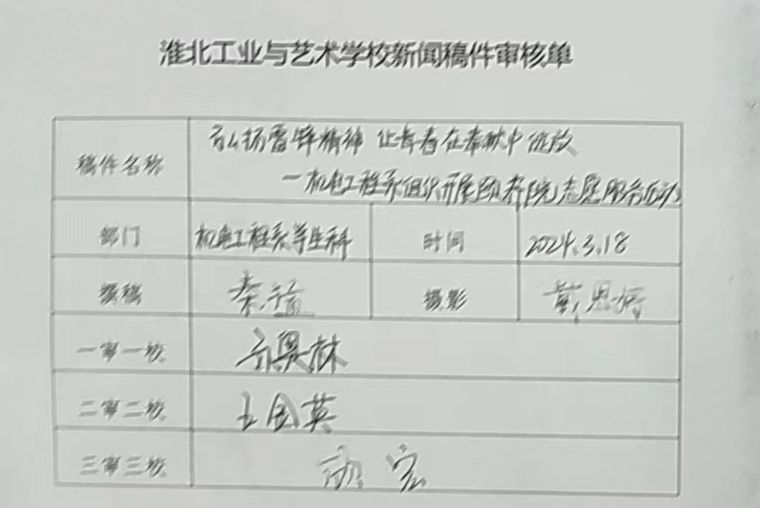 淮北工业与艺术学校新闻稿件审核单
稿件名称
弘扬雷锋精神 让青春在奉献中绽放
—机电工程系组织开展敬养院志愿服务活动
部门 机电工程系学生科 时间 2024.3.18
撰稿 秦 摄影 戴思
一审一校 林
二审二校 王国英
三审三校 宏